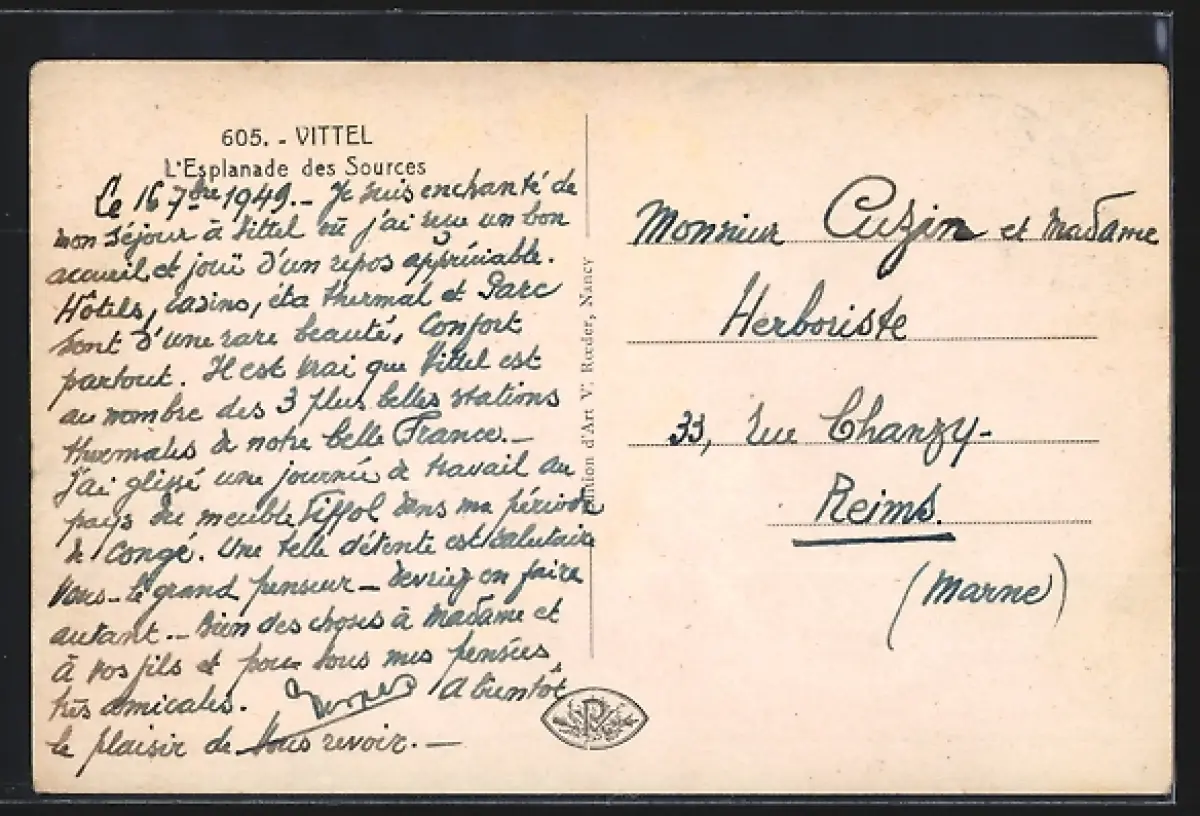 605. - VITTEL
L'Esplanade des Sources
Le 16 7bre 1949.- Je suis enchanté de
mon séjour à Vittel où j'ai reçu un bon
accueil et joui d'un repos appréciable.
Hôtels, casino, éta thermal et Parc
sont d'une rare beauté, Confort
partout. Il est vrai que Vittel est
au nombre des 3 plus belles stations
thermales de notre belle France.-
J'ai glissé une journée de travail au
pays du meuble Liffol dans ma période
de Congé. Une telle détente est salutaire
Vous - le grand penseur - devriez en faire
autant.- Bien des choses à Madame et
à vos fils et pour vous mes pensées
très amicales. A bientôt
le plaisir de vous revoir.-
Edition d'Art V. Rœder, Nancy
Monsieur Cuzin et Madame
Herboriste
33, rue Chanzy-
Reims.
(Marne)